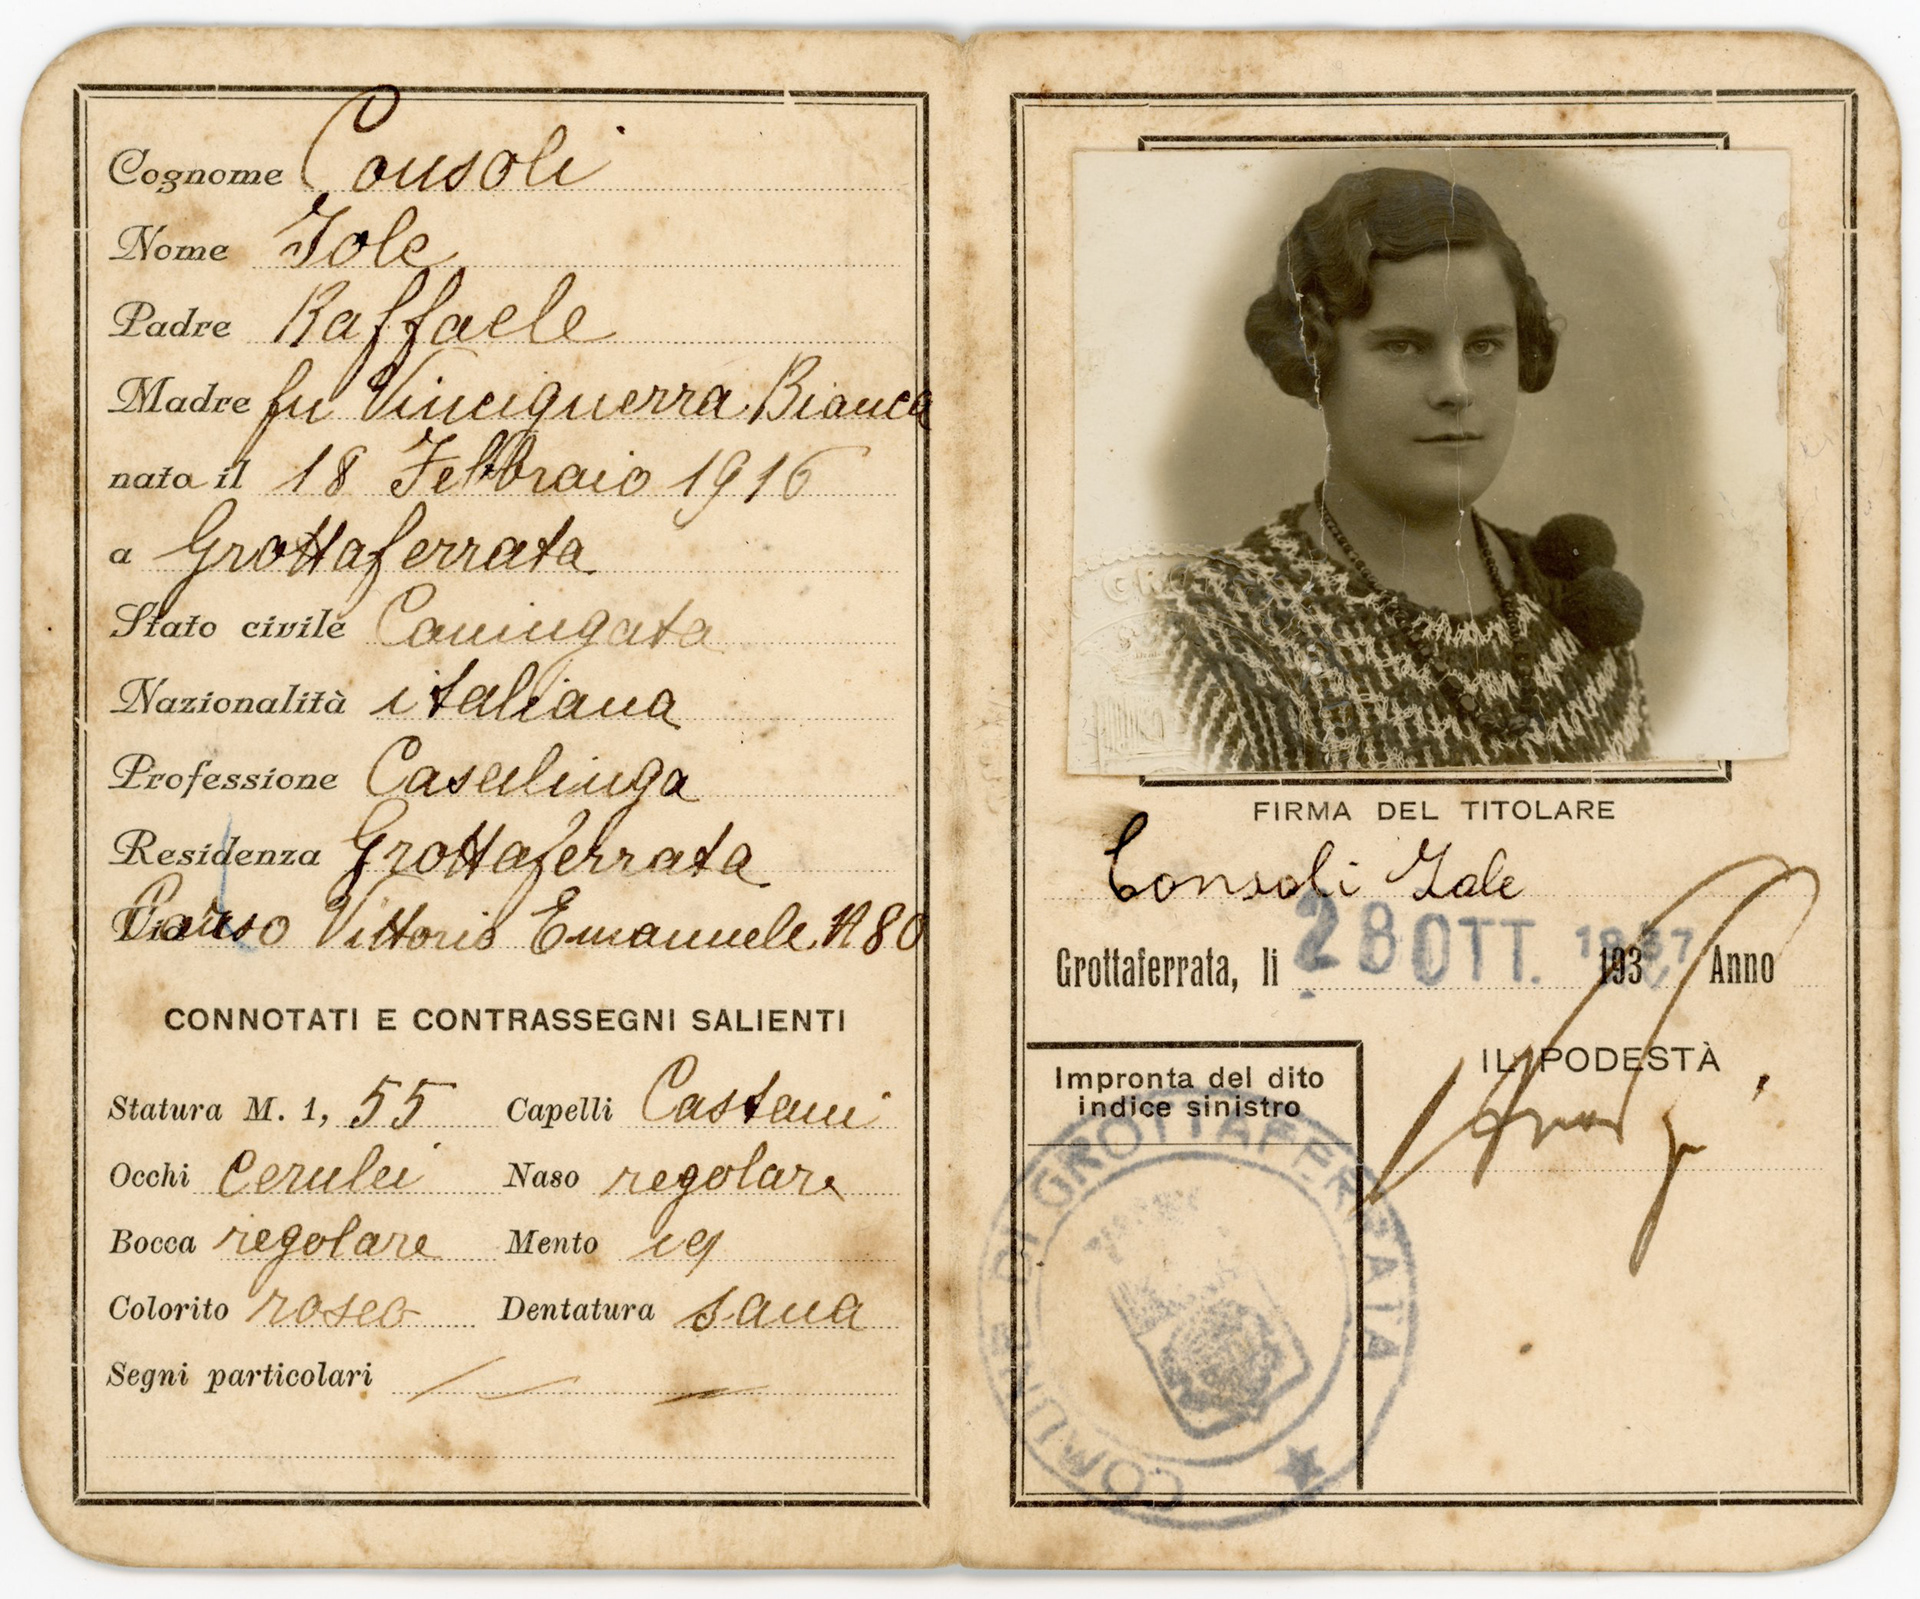 Cognome Consoli
Nome Iole
Padre Raffaele
Madre fu Vinciguerra Bianca
nata il 18 Febbraio 1916
a Grottaferrata
Stato civile Coniugata
Nazionalità italiana
Professione Casalinga
Residenza Grottaferrata
Via Corso Vittorio Emanuele N 80
CONNOTATI E CONTRASSEGNI SALIENTI
Statura M. 1, 55 Capelli Castani
Occhi Cerulei Naso regolare
Bocca regolare Mento id
Colorito roseo Dentatura sana
Segni particolari
FIRMA DEL TITOLARE
Consoli Iole
Grottaferrata, li 28 OTT. 1937 193 Anno
IL PODESTÀ
Impronta del dito
indice sinistro
COMUNE DI GROTTAFERRATA